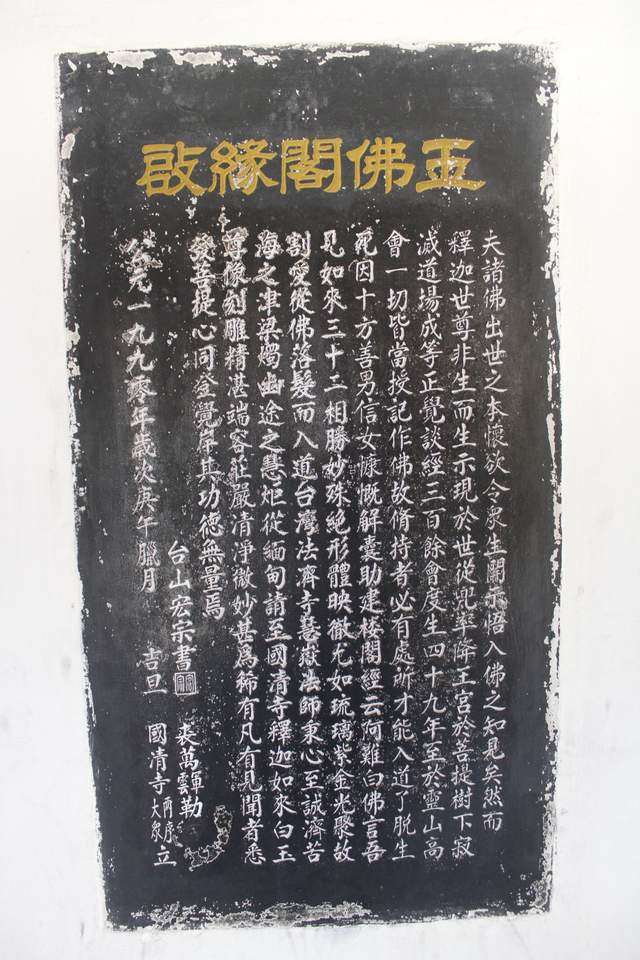 玉佛閣緣啟
夫諸佛出世之本懷欲令眾生開示悟入佛之知見矣然而
釋迦世尊非生而生示現於世從兜率降王宮於菩提樹下寂
滅道場成等正覺談經三百餘會度生四十九年至於靈山高
會一切皆當授記作佛故脩持者必有處所才能入道了脫生
死因十方善男信女慷慨解囊助建楼閣經云阿難白佛言吾
見如來三十二相勝妙殊絕形體映徹尤如琉璃紫金光聚故
割愛從佛落髮而入道台灣法濟寺慧嶽法師秉心至誠濟苦
海之津梁燭幽途之慧炬從緬甸請至國清寺釋迦如來白玉
尊像刻雕精湛端容莊嚴清淨微妙甚為稀有凡有見聞者悉
發菩提心同登覺岸其功德無量焉
台山宏宗書
裘萬暉雲勒
公元一九九零年歲次庚午臘月 吉旦 國清寺兩序大眾立